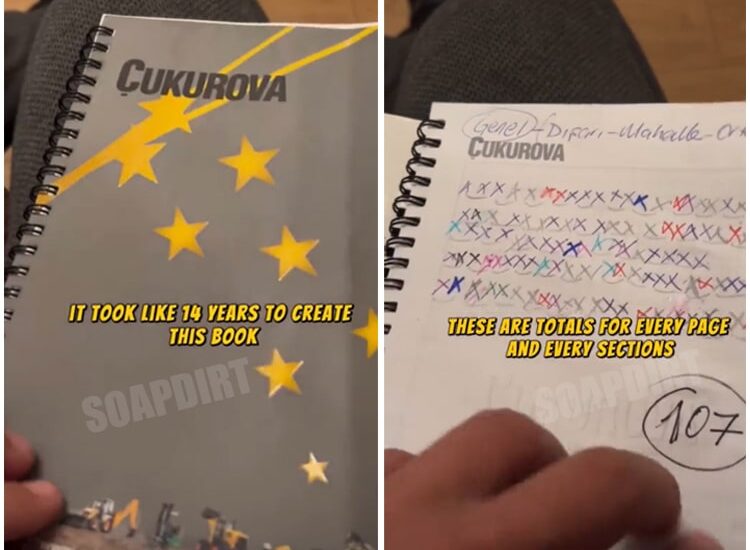 ÇUKUROVA
IT TOOK LIKE 14 YEARS TO CREATE
THIS BOOK
SOAPDIRT
Genel-Dışarı-Mahalle-
ÇUKUROVA
THESE ARE TOTALS FOR EVERY PAGE
AND EVERY SECTIONS
SOAPDIRT
107